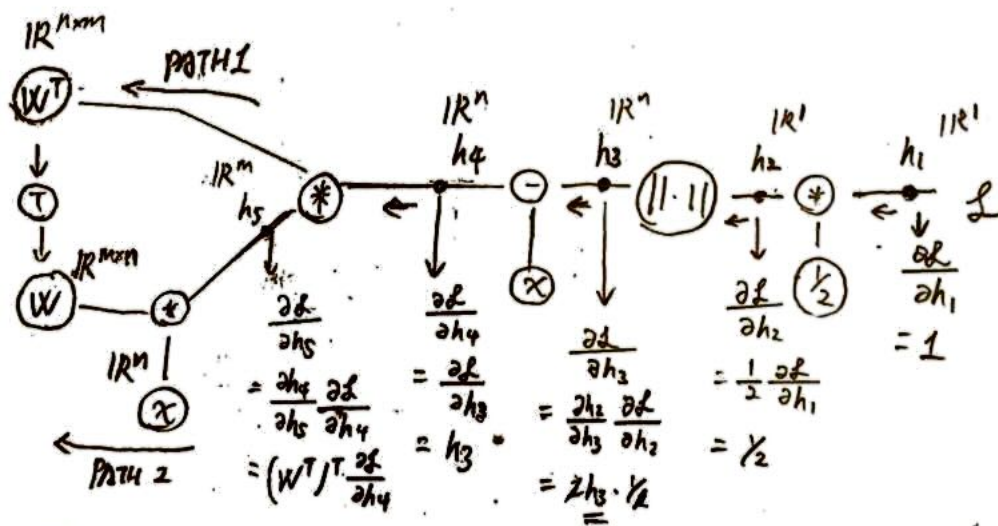 IR^{n×m}
PATH 1
W^T
T
W
IR^{m×n}
*
IR^n
x
PATH 2
IR^m
h5
*
∂L/∂h5
= ∂h4/∂h5 ∂L/∂h4
= (W^T)^T · ∂L/∂h4
IR^n
h4
∂L/∂h4
= ∂L/∂h3
= h3
-
x
IR^n
h3
∂L/∂h3
= ∂h2/∂h3 ∂L/∂h2
= 2h3 · 1/2
||·||
IR^1
h2
∂L/∂h2
= 1/2 ∂L/∂h1
= 1/2
*
1/2
IR^1
h1
L
∂L/∂h1
= 1